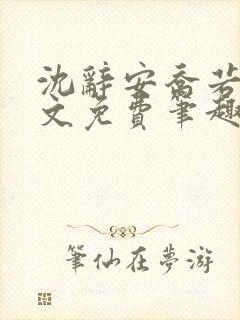 沈辭安喬若
文免費筆趣
筆仙在夢游